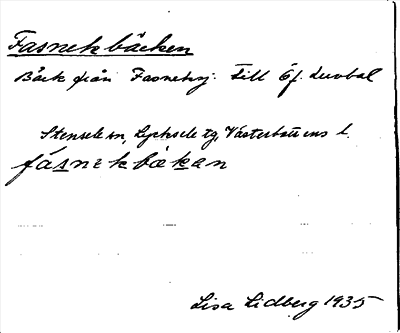 Fasnekbäcken
Bäck från Fasneksj. till Öf. Luvbal
Stensele sn, Lycksele tg, Västerbottens l.
fásnekbäkan
Lisa Lidberg 1935